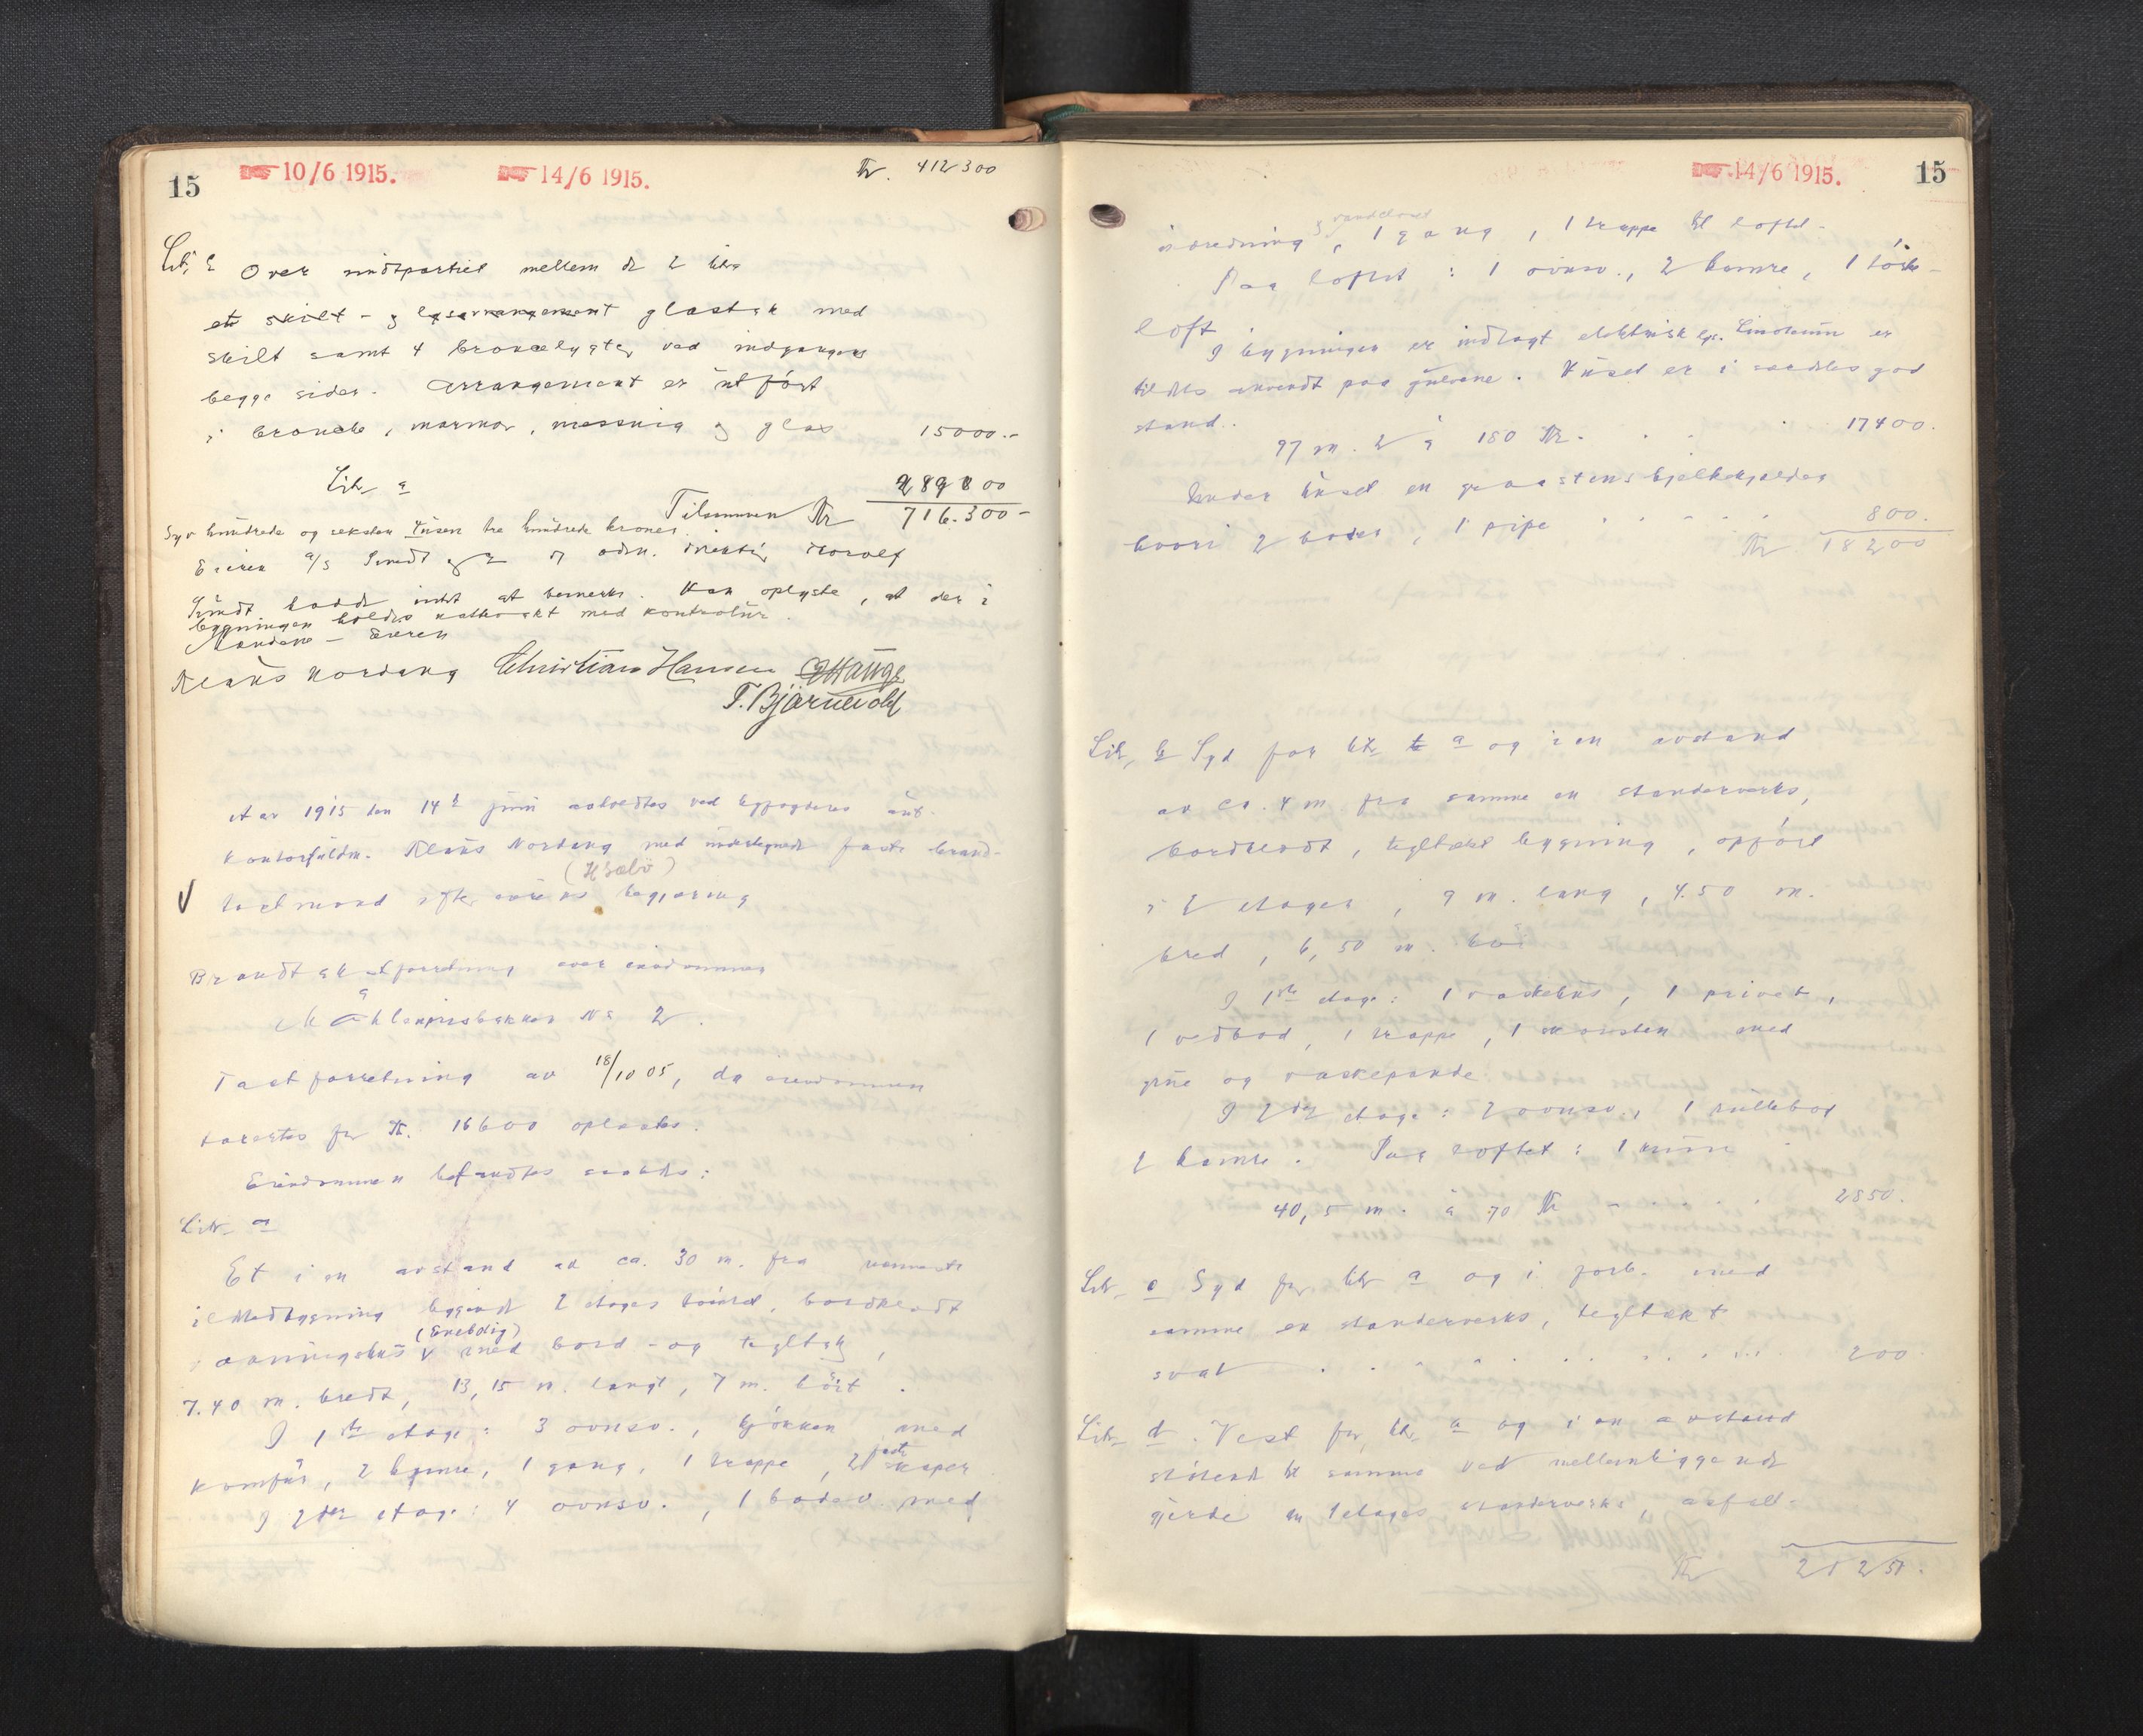 15
10/6 1915.
14/6 1915.
Kr. 412300
Litr. b Over midtpartiet mellem de 2 litra
et skilt- og lysarrangement glastak med
skilt samt 4 broncelygter ved indgangens
begge sider. Arrangement er utført
i bronce, marmor, messing og glas 15000.-
Litr. a
Tilsammen Kr 716.300-
Syv hundrede og seksten tusen tre hundrede kroner.
bygningen holdes natvakt med kontrolur.
Klaus Nordang Christian Hansen Hauge
T. Bjørnevold
Aar 1915 den 14de juni avholdtes ved byfogdens aut.
kontorfuldm. Klaus Nordang med undertegnede faste brand-
takstmænd efter eierens begjæring
Brandtakstforretning over eiendommen
No 2.
Takstforretning av 18/10 05, da eiendommen
takseertes for Kr. 16600 oplæstes.
Eiendommen befandtes saaledes:
Litr. a
Et i en avstand av ca. 30 m. fra nærmeste
ildstedbygning liggende 2 etages tømret, bordklædt
(Enebolig)
vaaningshus v med bord- og tegltak,
7.40 m. bredt, 13,15 m. langt, 7 m. høit.
I 1ste etage: 3 ovnsv., kjøkken med
komfur, 2 kamre, 1 gang, 1 trappe, 2 faste skaper
I 2den etage: 4 ovnsv., 1 badev. med
14/6 1915.
15
indredning og vandcloset, 1 gang, 1 trappe til loftet.
Paa loftet: 1 ovnsv., 2 kamre, 1 tørke-
loft
I bygningen er indlagt elektrisk lys. Linoleum er
tildels anvendt paa gulvene. Huset er i særdeles god
stand.
97 m. 2 à 180 Kr. 17400.
Under huset en graastensbjelkekjælder
hvori 2 boder, 1 pipe 800.
Kr 18200
Litr. b Syd for litr. a og i en avstand
av ca. 4 m. fra samme en stenderverks,
bordklædt, tegltækt bygning, opført
i 2 etager, 9 m. lang, 4.50 m.
bred, 6,50 m. høi
I 1ste etage: 1 vaskehus, 1 privet,
1 vedbod, 1 trappe, 1 skorsten med
grue og vaskepande.
I 2den etage: 2 ovnsv., 1 rullebod
2 kamre. Paa loftet: 1 rum
40,5 m. à 70 Kr 2850.
Litr. c Syd for litr a og i forb. med
samme en stenderverks, tegltækt
sval 200.
Litr. d. Vest for litr. a og i en avstand
støtende til samme ved mellemliggende
gjerde en 1 etages stenderverks, asfalt-
Kr 21250.